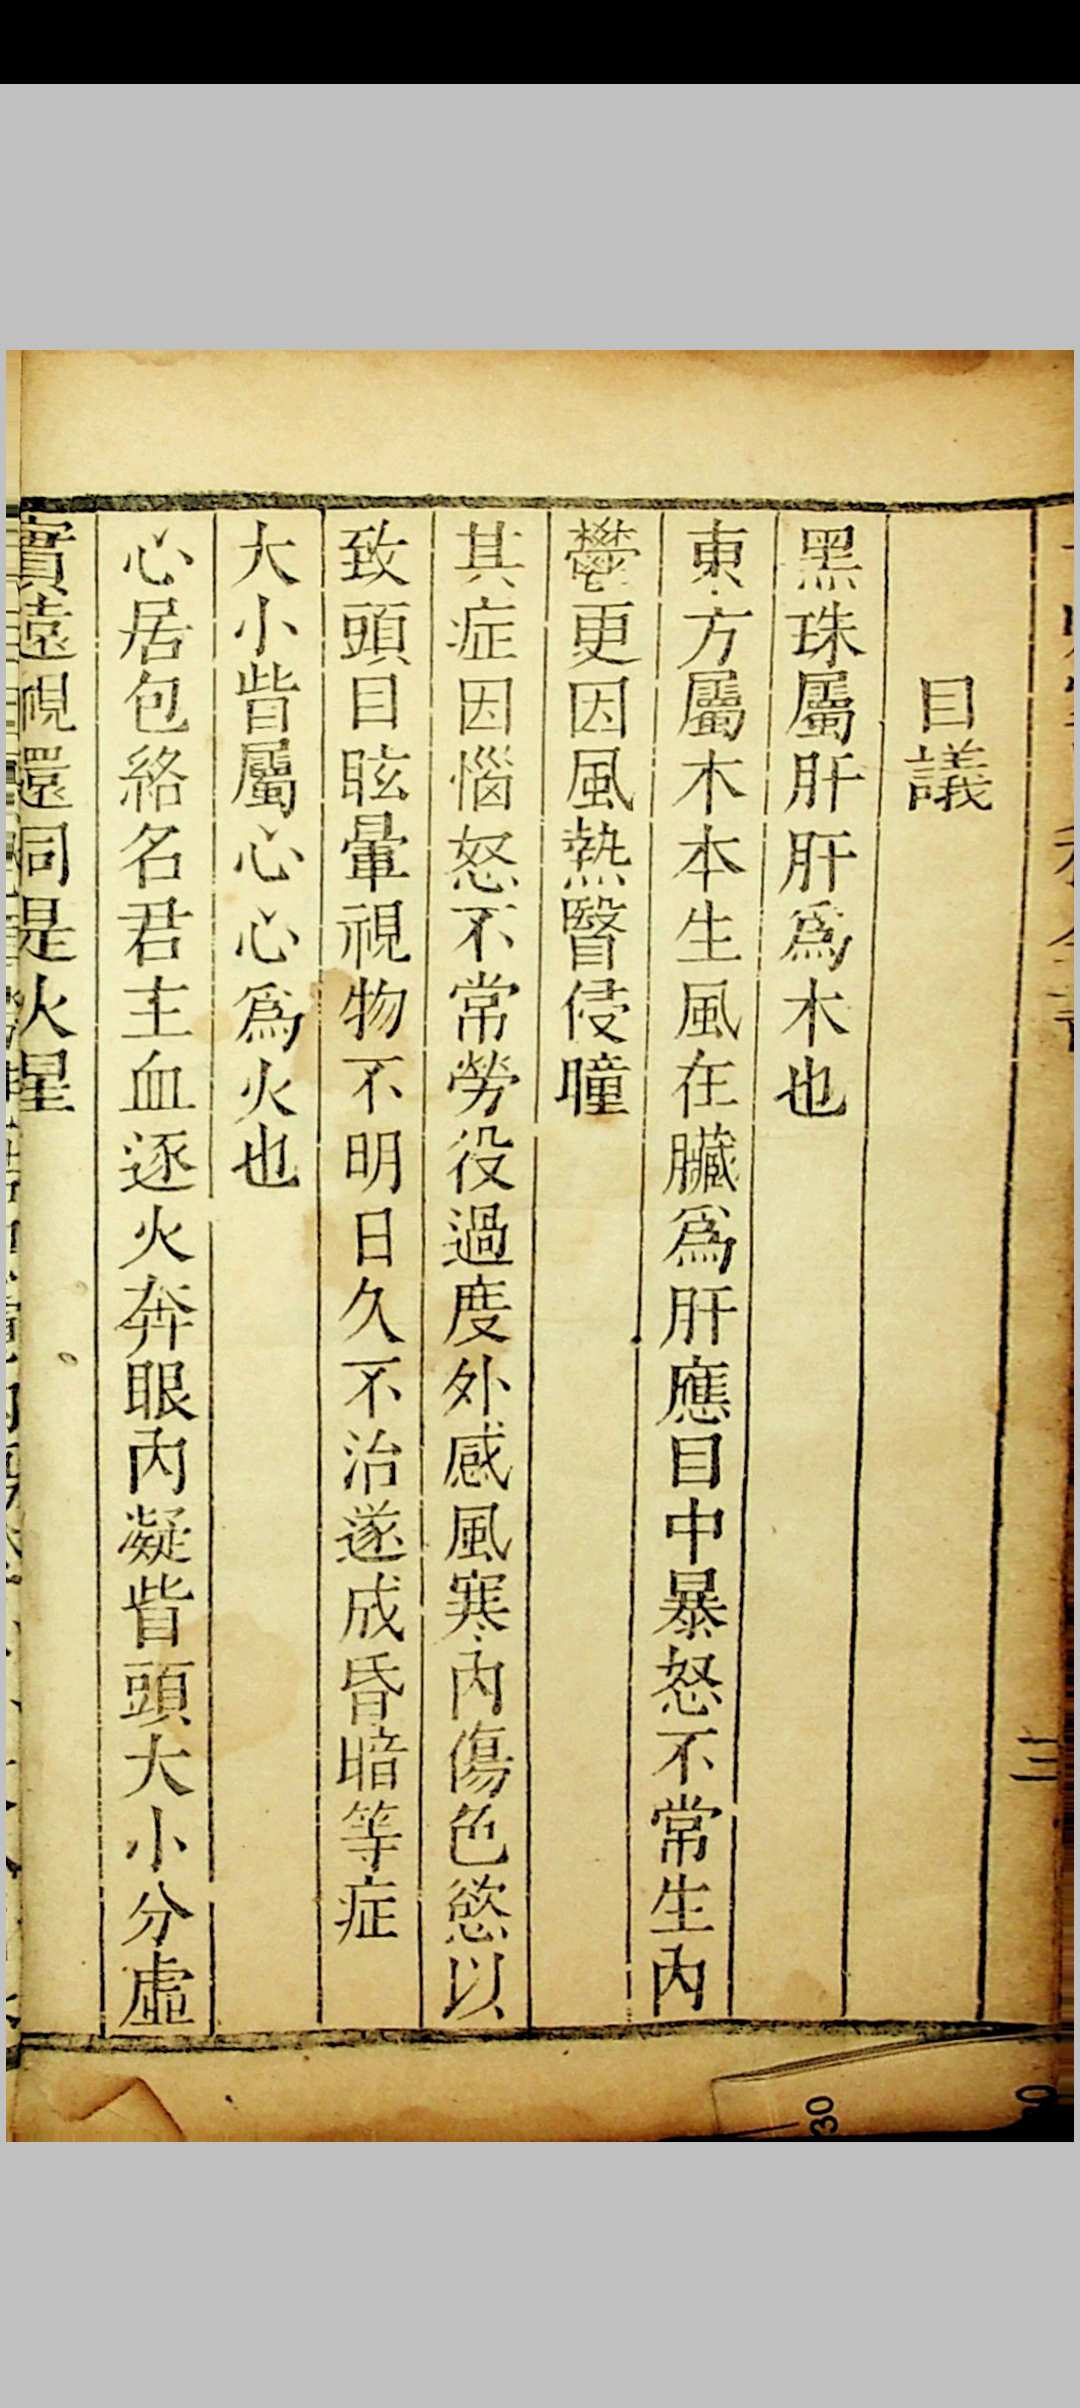 目議
黑珠屬肝肝爲木也
東方屬木本生風在臟爲肝應目中暴怒不常生內
鬱更因風熱醫侵瞳
其症因惱怒不常勞役過度外感風寒內傷色慾以
致頭目眩暈視物不明日久不治遂成昏暗等症
大小眥屬心心爲火也
心居包絡名君主血逐火奔眼內凝眥頭大小分虛
實遠視還同是火星
三
30